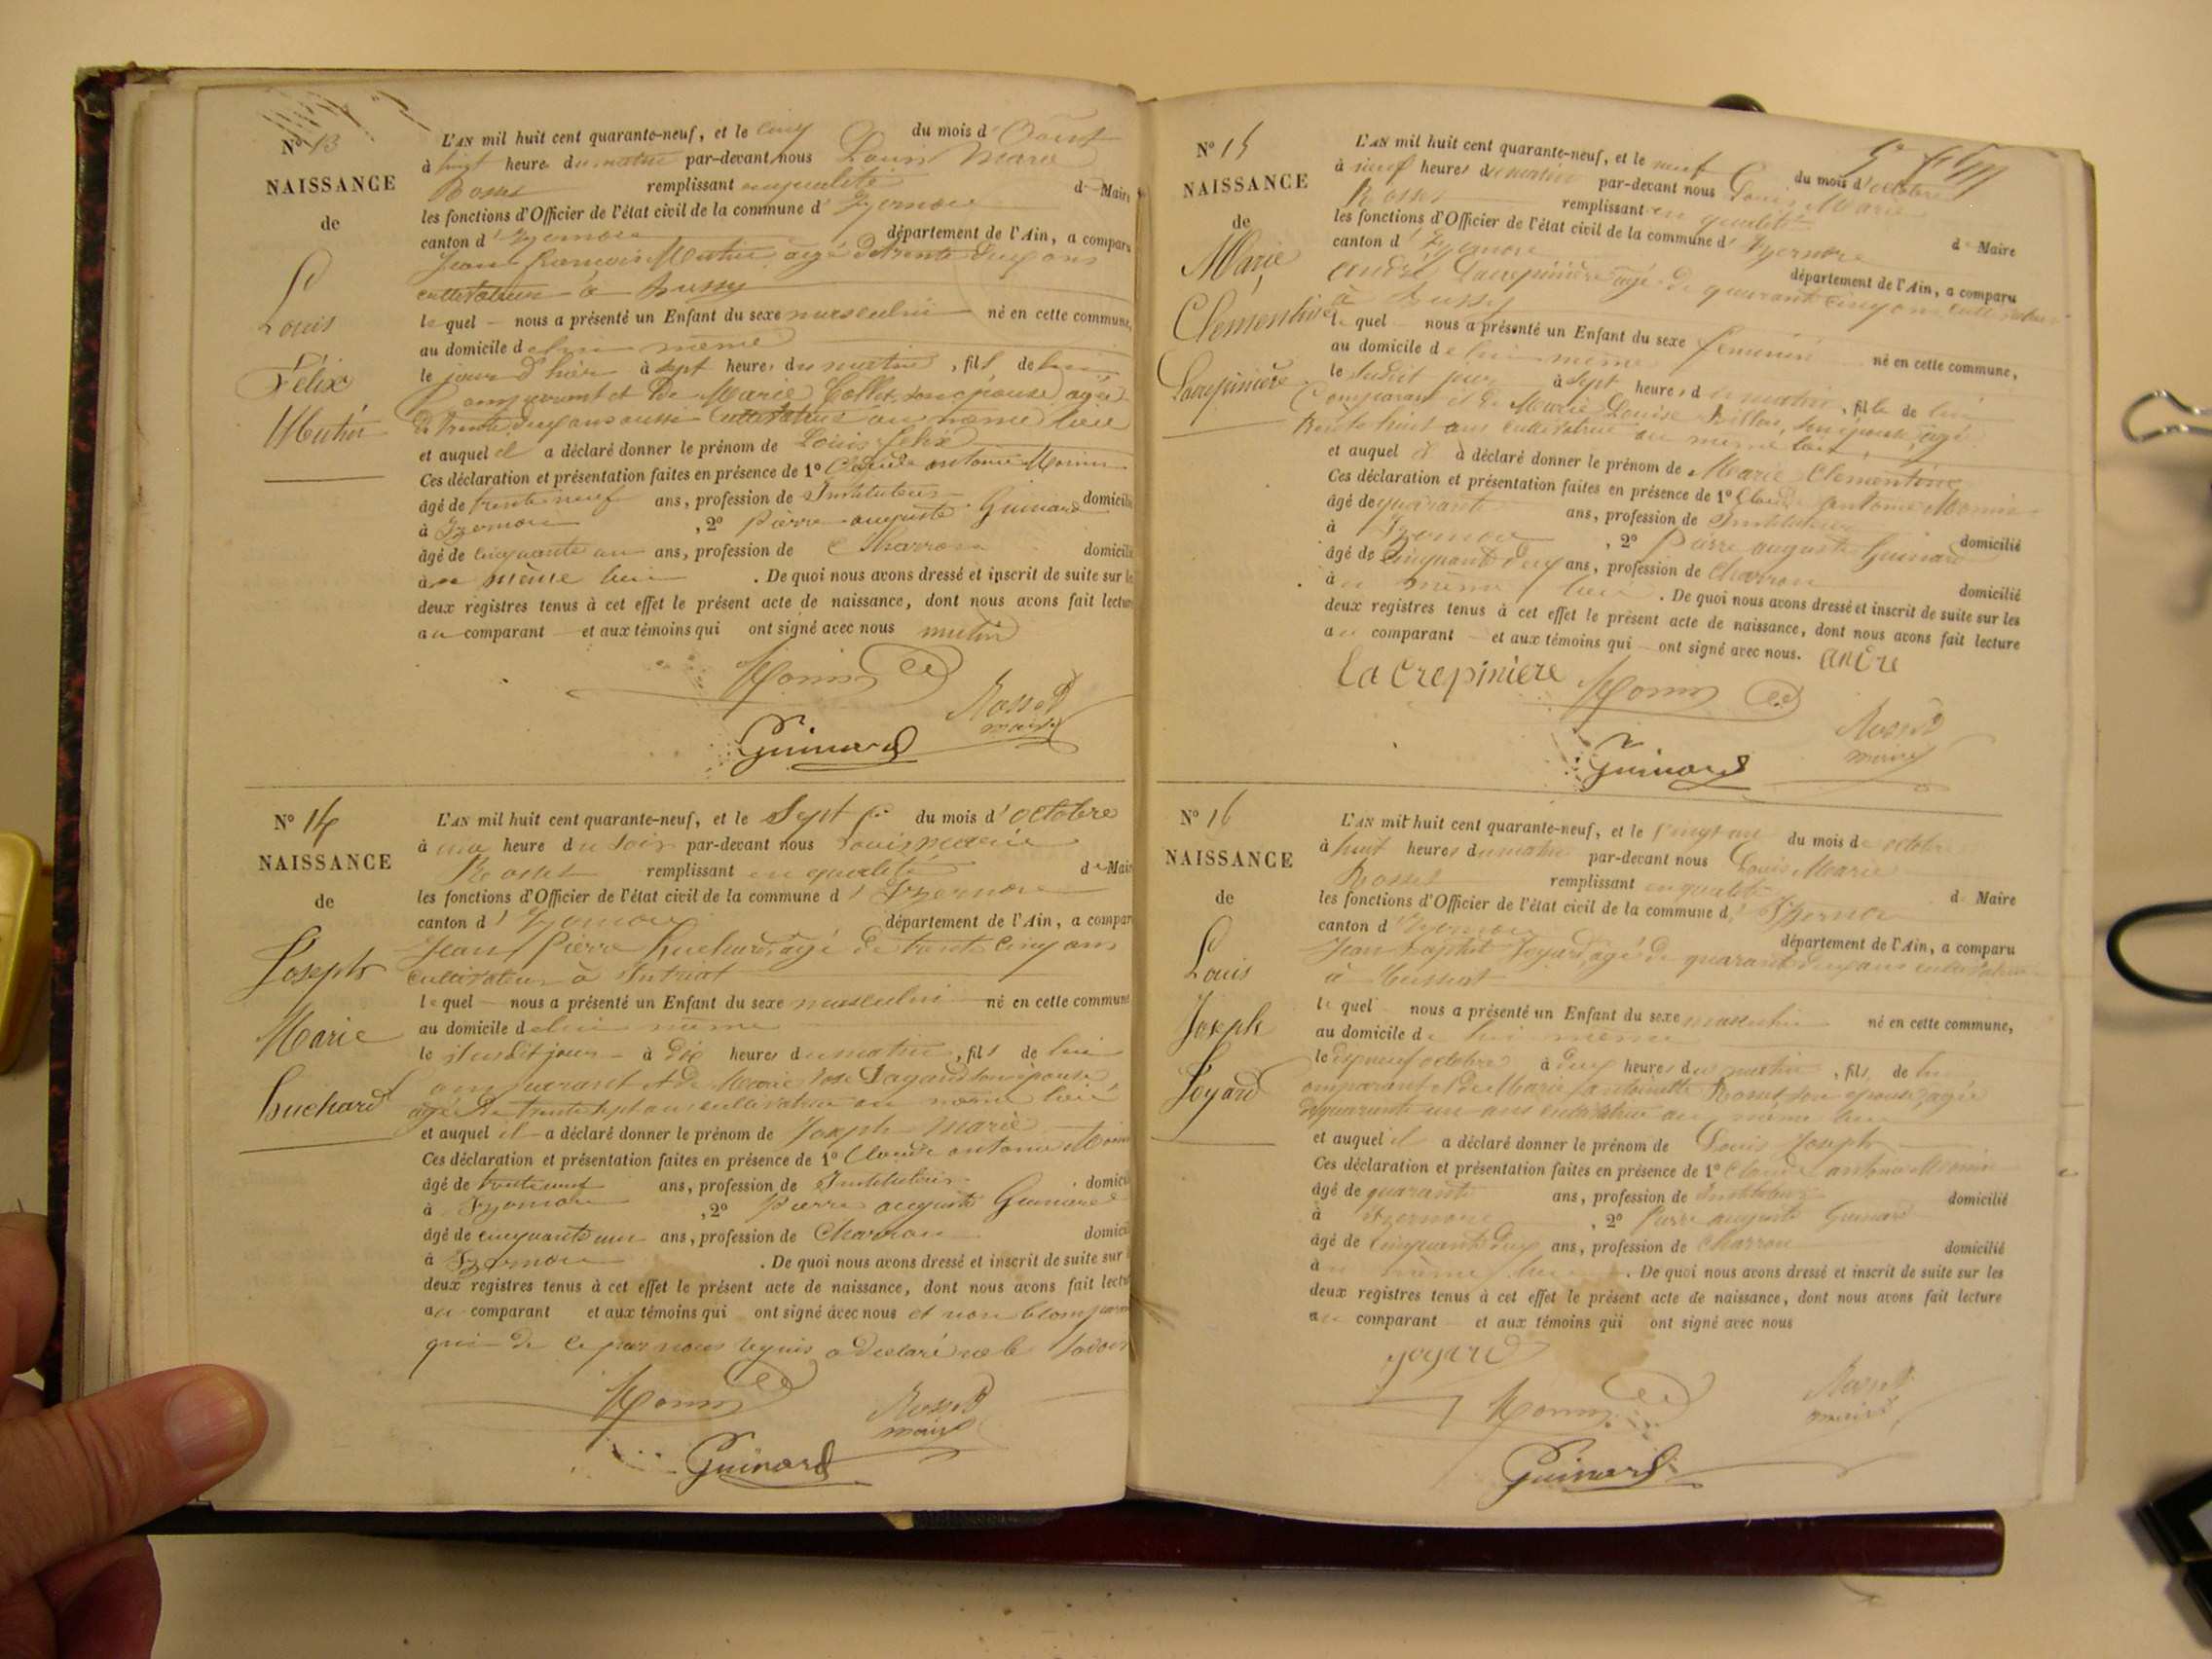 N° 13
NAISSANCE
de
Louis
Félix
Mutin
L'AN mil huit cent quarante-neuf, et le cinq du mois d'Août
à huit heures du matin par-devant nous Louis Marie
Rosset remplissant en qualité de Maire
les fonctions d'Officier de l'état civil de la commune d'Izernore
canton d'Izernore département de l'Ain, a comparu
Jean françois Mutin âgé de trente deux ans
cultivateur à Bussy
lequel nous a présenté un Enfant du sexe masculin né en cette commune,
au domicile de lui même
le jour d'hier à sept heures du matin, fils de lui
Comparant et de Marie Collet, son épouse, agée
de trente deux ans aussi cultivatrice au même lieu
et auquel il a déclaré donner le prénom de Louis félix
Ces déclaration et présentation faites en présence de 1° Claude antoine Monin
âgé de trente neuf ans, profession de Instituteur domicilié
à Izernore, 2° Pierre auguste Guinard
âgé de cinquante un ans, profession de Charron domicilié
au même lieu. De quoi nous avons dressé et inscrit de suite sur les
deux registres tenus à cet effet le présent acte de naissance, dont nous avons fait lecture
au comparant et aux témoins qui ont signé avec nous mutin
Monin
Rosset
maire
Guinard
N° 14
NAISSANCE
de
Joseph
Marie
Huchard
L'AN mil huit cent quarante-neuf, et le Sept du mois d'octobre
à une heure du soir par-devant nous Louis marie
Rosset remplissant en qualité de Maire
les fonctions d'Officier de l'état civil de la commune d'Izernore
canton d'Izernore département de l'Ain, a comparu
Jean Pierre Huchard, âgé de trente cinq ans
cultivateur à Intriat
lequel nous a présenté un Enfant du sexe masculin né en cette commune
au domicile de lui même
le susdit jour à dix heures du matin, fils de lui
comparant et de Marie Rose son épouse
agée de trente sept ans cultivatrice au même lieu
et auquel il a déclaré donner le prénom de Joseph Marie
Ces déclaration et présentation faites en présence de 1° Claude antoine Monin
âgé de trente neuf ans, profession de Instituteur domicilié
à Izernore, 2° Pierre auguste Guinard
âgé de cinquante un ans, profession de Charron domicilié
à Izernore. De quoi nous avons dressé et inscrit de suite sur
deux registres tenus à cet effet le présent acte de naissance, dont nous avons fait lecture
au comparant et aux témoins qui ont signé avec nous et non le Comparant
qui de ce par nous requis a déclaré ne le savoir
Monin
Rosset
maire
Guinard
N° 15
NAISSANCE
de
Marie
Clementine
Lacrepinière
L'AN mil huit cent quarante-neuf, et le neuf du mois d'octobre
à neuf heures du matin par-devant nous Louis Marie
Rosset remplissant en qualité de Maire
les fonctions d'Officier de l'état civil de la commune d'Izernore
canton d'Izernore département de l'Ain, a comparu
andré Lacrepinière âgé de quarante cinq ans cultivateur
à Bussy
lequel nous a présenté un Enfant du sexe féminin né en cette commune,
au domicile de lui même
le susdit jour à sept heures du matin, fille de lui
Comparant et de Marie Louise Billon, son épouse, agée
trente huit ans cultivatrice au même lieu
et auquel il a déclaré donner le prénom de Marie Clementine
Ces déclaration et présentation faites en présence de 1° Claude antoine Monin
âgé de quarante ans, profession de Instituteur domicilié
à Izernore, 2° Pierre auguste Guinard
âgé de cinquante deux ans, profession de Charron domicilié
au même lieu. De quoi nous avons dressé et inscrit de suite sur les
deux registres tenus à cet effet le présent acte de naissance, dont nous avons fait lecture
au comparant et aux témoins qui ont signé avec nous. André
La crepiniere
Monin
Rosset
maire
Guinard
N° 16
NAISSANCE
de
Louis
Joseph
Joyard
L'AN mil huit cent quarante-neuf, et le vingt un du mois de octobre
à huit heures du matin par-devant nous Louis Marie
Rosset remplissant en qualité de Maire
les fonctions d'Officier de l'état civil de la commune d'Izernore
canton d'Izernore département de l'Ain, a comparu
Jean Baptist Joyard, âgé de quarante deux ans cultivateur
à
lequel nous a présenté un Enfant du sexe masculin né en cette commune,
au domicile de lui même
le dix neuf octobre à deux heures du matin, fils de lui
comparant et de Marie antoinette Rosset son épouse, agée
de quarante un ans cultivatrice au même lieu
et auquel il a déclaré donner le prénom de Louis Joseph
Ces déclaration et présentation faites en présence de 1° Claude antoine Monin
âgé de quarante ans, profession de Instituteur domicilié
à Izernore, 2° Pierre auguste Guinard
âgé de cinquante deux ans, profession de Charron domicilié
au même lieu. De quoi nous avons dressé et inscrit de suite sur les
deux registres tenus à cet effet le présent acte de naissance, dont nous avons fait lecture
au comparant et aux témoins qui ont signé avec nous
joyard
Monin
Rosset
maire
Guinard